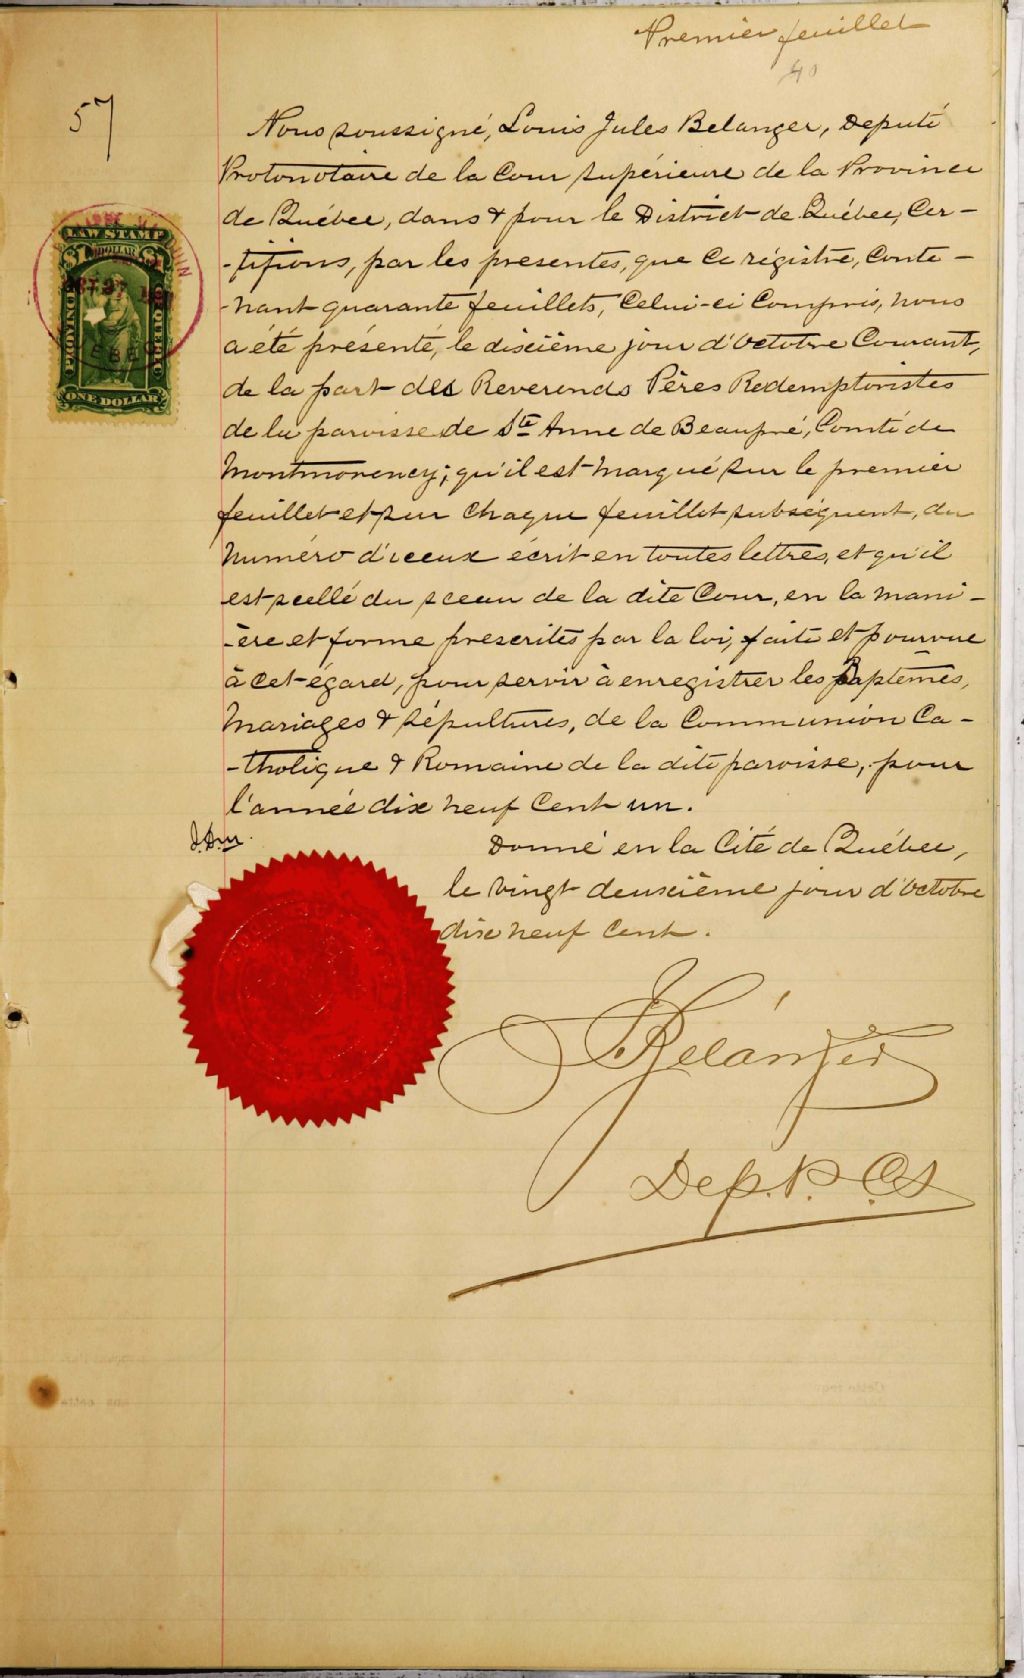 Premier feuillet
40
57
Nous soussigné, Louis Jules Belanger, Deputé
Protonotaire de la Cour Supérieure de la Province
de Québec, dans & pour le District de Québec, Cer-
-tifions, par les presentes, que ce régistre, conte-
-nant quarante feuillets, Celui-ci Compris, nous
a été présenté, le dixième jour d'Octobre Courant,
de la part des Reverends Pères Redemptoristes
de la paroisse de Ste Anne de Beaupré, Comté de
Montmorency; qu'il est marqué sur le premier
feuillet et sur chaque feuillet subséquent, du
numéro d'iceux écrit en toutes lettres, et qu'il
est scellé du sceau de la dite Cour, en la mani-
-ère et forme prescrites par la loi, faite et pourvue
à cet égard, pour servir à enregistrer les Baptêmes,
Mariages & Sépultures, de la Communion Ca-
-tholique & Romaine de la dite paroisse, pour
l'année dix neuf Cent un.
Donné en la Cité de Québec,
le vingt deuxième jour d'Octobre
dix neuf Cent.
LJBélanger
Dep. P. CS
LAW STAMP
$1 DOLLAR $1
PROVINCE
QUEBEC
ONE DOLLAR